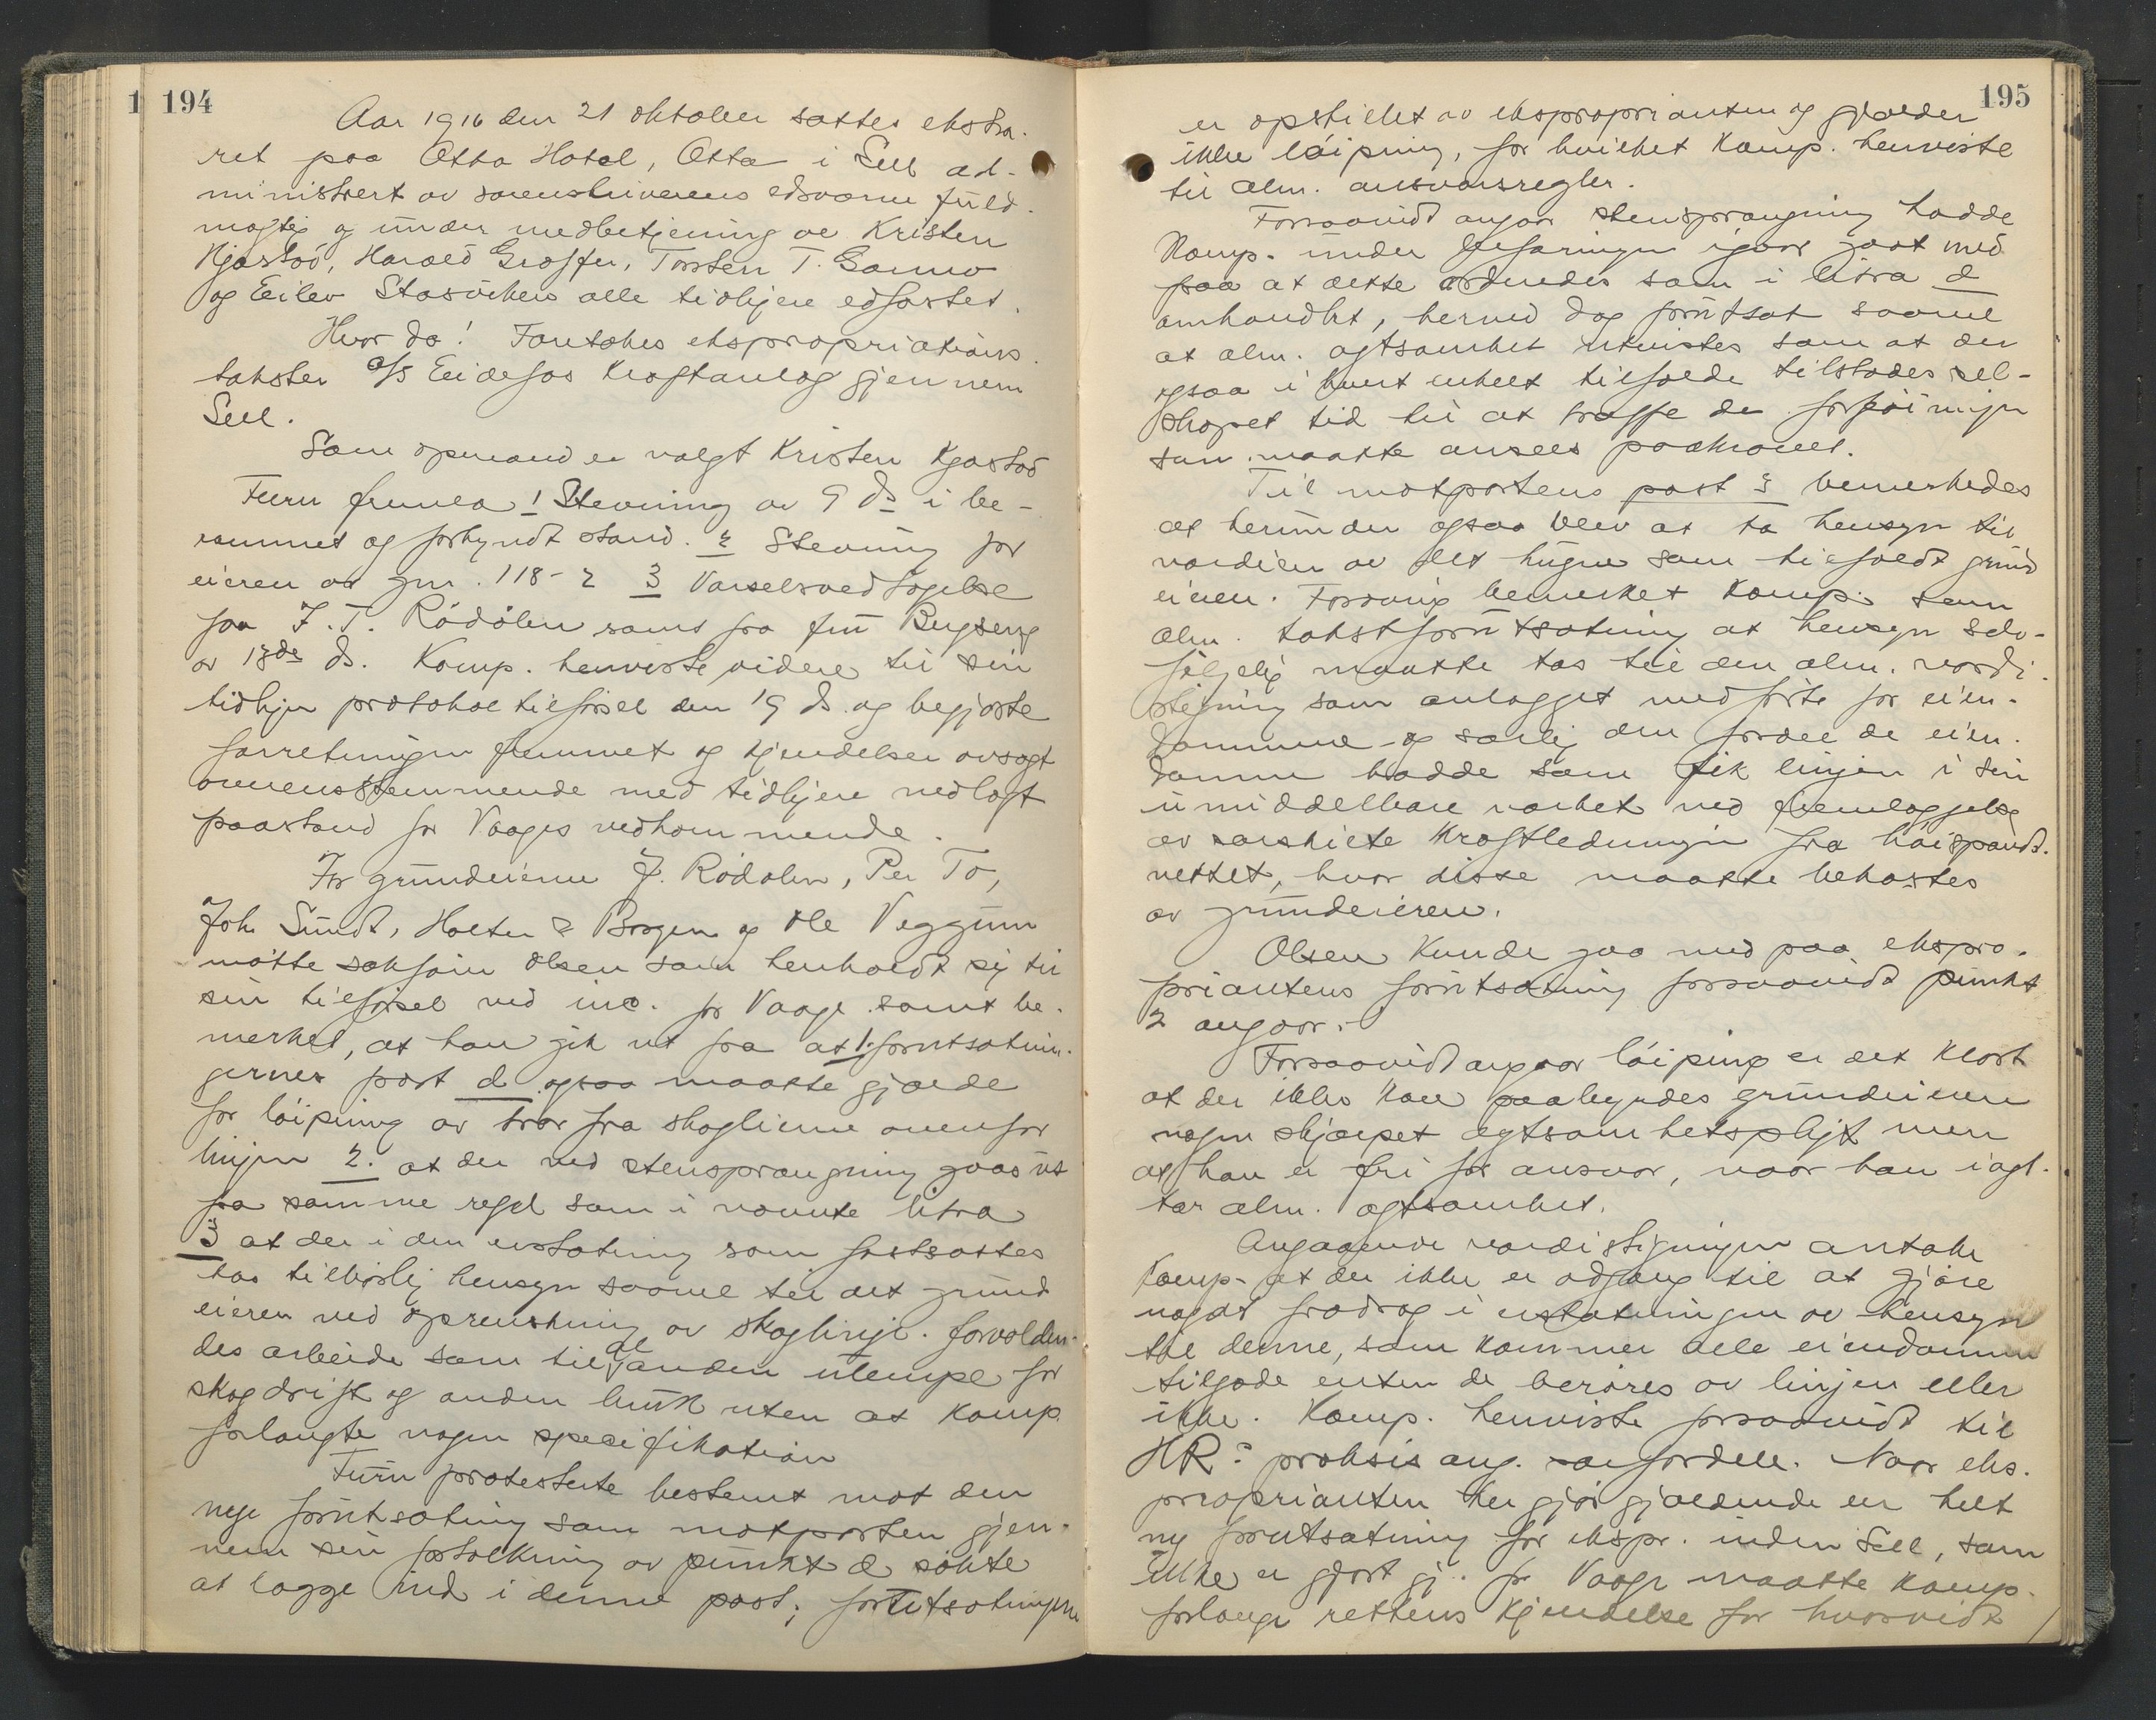 1 194
Aar 1916 den 21 oktober sattes ekstra-
ret paa Otta Hotel, Otta i Sell ad-
ministrert av sorenskriverens edsvorne fuld-
mægtig og under medbetjening av Kristen
Kjæstad, Harald Graffer, Torsten T. Garmo
og Eilev Stasviken alle tidligere edfæstet.
Hvor da! Foretokes ekspropriations-
takster a/s Eidefos Kraftanlæg gjennem
Sell.
Som opmand er valgt Kristen Kjæstad
Furu fremla 1 Stevning av 9 ds i be-
rammet og forkyndt stand. 2 Stevning for
eieren av gnr. 118-2 3 Varselsvedtagelse
fra J. T. Rödölen samt fra fru Bergseng
av 13de ds. Komp. henviste videre til sin
tidligere protokoltilførsel den 19 ds. og begjærte
forretningen fremmet og kjendelser avsagt
overensstemmende med tidligere nedlagt
paastand for Vaages vedkommende.
For grundeierne J. Rödölen, Per To,
Joh. Sundt, Holter & Brogen og Ole Veggum
møtte sakfører Olsen som henholdt sig til
sin tilførsel ved inc. for Vaage samt be-
merket, at han gik ut fra at 1. forutsætnin-
gernes post d ogsaa maatte gjælde
for löipning av trær fra skoglierne ovenfor
linjen 2. at der ved stensprængning gaaes ut
fra samme regel som i nævnte litra
3 at der i den erstatning som fastsættes
tas tilbørlig hensyn saavel til det grund
eieren ved oprenskning av skoglinje. forvolden-
des arbeide som til al anden ulempe for
skogdrift og anden bruk uten at komp.
forlangte nogen specifikation
Furu protesterte bestemt mot den
nye forutsætning som motparten gjen-
nem sin fortolkning av punkt d søkte
at lægge ind i denne post; forutsætningen
195
er opstillet av eksproprianten og gjælder
ikke löipning, for hvilket Komp. henviste
til alm. ansvarsregler.
Forsaavidt angaar stensprængning hadde
Komp. under befaringen igaar gaat med
paa at dette ordnedes som i litra d
omhandlet, herved dog forutsat saavel
at alm. agtsomhet utvistes som at der
ogsaa i hvert enkelt tilfælde tilstodes sel-
skapet tid til at træffe de forføininger
som maatte ansees paakrævet.
Til motpartens post 3 bemerkedes
at herunder ogsaa blev at ta hensyn til
værdien av det hugne som tilfaldt grund
eieren. Forøvrig bemerket Komp. som
alm. takstforutsætning at hensyn selv-
følgelig maatte tas til den alm. værdi-
stigning som anlægget medførte for eien-
dommene og særlig den fordel de eien-
domme hadde som fik linjen i sin
umiddelbare nærhet ved fremlæggelse
av særskilte kraftledninger fra höispænds-
nettet, hvor disse maatte bekostes
av grundeieren.
Olsen kunde gaa med paa ekspro-
priantens forutsætning forsaavidt punkt
2 angaar.
Forsaavidt angaar löiping er det klart
at der ikke kan paabyrdes grundeieren
nogen skjærpet agtsomhetspligt men
at han er fri for ansvar, naar han iagt-
tar alm. agtsomhet.
Angaaende værdistigningen antok
Komp. at der ikke er adgang til at gjöre
noget fradrag i erstatningen av hensyn
til denne, som kommer alle eiendomme
tilgode enten de beröres av linjen eller
ikke. Komp. henviste forsaavidt til
HR: praksis ang. særfordele. Naar eks-
proprianten her gjör gjældende en helt
ny forutsætning for ekspr. inden Sell, som
ikke er gjort gj. for Vaage maatte Komp.
forlange rettens kjendelse for hvorvidt